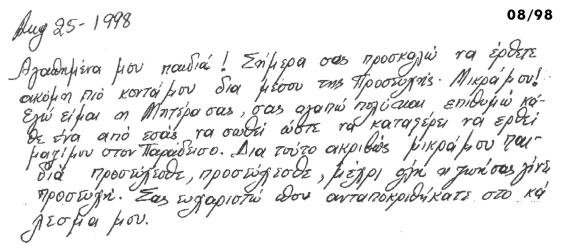 08/98
Aug 25-1998
Αγαπημένα μου παιδιά! Σήμερα σας προσκαλώ να έρθετε
ακόμη πιό κοντά μου δια μέσου της Προσευχής. Μικρά μου!
Εγώ είμαι η Μητέρα σας, σας αγαπώ πολύ και επιθυμώ κά-
θε ένα από εσάς να σωθεί ώστε να καταφέρει να έρθει
μαζί μου στον Παράδεισο. Δια τούτο ακριβώς μικρά μου παι-
διά προσεύχεσθε, προσεύχεσθε, μέχρι όλη η ζωή σας γίνει
προσευχή. Σας ευχαριστώ που ανταποκριθήκατε στο κά
λεσμα μου.